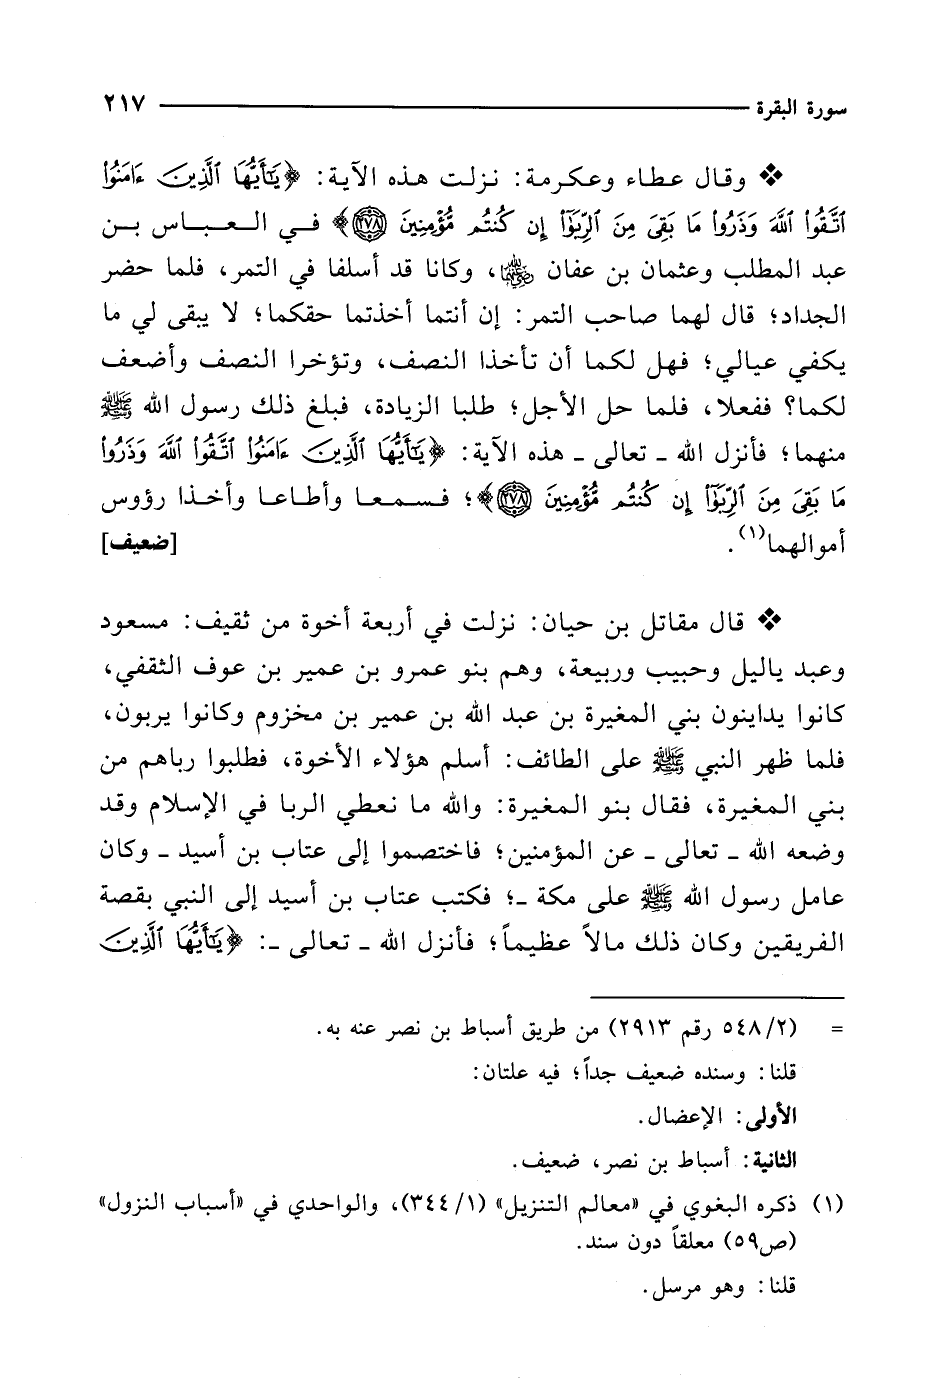 سورة البقرة ٢١٧
❖ وقال عطاء وعكرمة: نزلت هذه الآية: ﴿يَٰٓأَيُّهَا ٱلَّذِينَ ءَامَنُوا۟
ٱتَّقُوا۟ ٱللَّهَ وَذَرُوا۟ مَا بَقِىَ مِنَ ٱلرِّبَوٰٓا۟ إِن كُنتُم مُّؤْمِنِينَ ٢٧٨﴾ في العباس بن
عبد المطلب وعثمان بن عفان ﵄، وكانا قد أسلفا في التمر، فلما حضر
الجداد؛ قال لهما صاحب التمر: إن أنتما أخذتما حقكما؛ لا يبقى لي ما
يكفي عيالي؛ فهل لكما أن تأخذا النصف، وتؤخرا النصف وأضعف
لكما؟ ففعلا، فلما حل الأجل؛ طلبا الزيادة، فبلغ ذلك رسول الله ﷺ
منهما؛ فأنزل الله ـ تعالى ـ هذه الآية: ﴿يَٰٓأَيُّهَا ٱلَّذِينَ ءَامَنُوا۟ ٱتَّقُوا۟ ٱللَّهَ وَذَرُوا۟
مَا بَقِىَ مِنَ ٱلرِّبَوٰٓا۟ إِن كُنتُم مُّؤْمِنِينَ ٢٧٨﴾؛ فسمعا وأطاعا وأخذا رؤوس
أموالهما(١). [ضعيف]
❖ قال مقاتل بن حيان: نزلت في أربعة أخوة من ثقيف: مسعود
وعبد ياليل وحبيب وربيعة، وهم بنو عمرو بن عمير بن عوف الثقفي،
كانوا يداينون بني المغيرة بن عبد الله بن عمير بن مخزوم وكانوا يربون،
فلما ظهر النبي ﷺ على الطائف: أسلم هؤلاء الأخوة، فطلبوا رباهم من
بني المغيرة، فقال بنو المغيرة: والله ما نعطي الربا في الإسلام وقد
وضعه الله ـ تعالى ـ عن المؤمنين؛ فاختصموا إلى عتاب بن أسيد ـ وكان
عامل رسول الله ﷺ على مكة ـ؛ فكتب عتاب بن أسيد إلى النبي بقصة
الفريقين وكان ذلك مالاً عظيماً؛ فأنزل الله ـ تعالى ـ: ﴿يَٰٓأَيُّهَا ٱلَّذِينَ
= (٢/ ٥٤٨ رقم ٢٩١٣) من طريق أسباط بن نصر عنه به.
قلنا: وسنده ضعيف جداً؛ فيه علتان:
الأولى: الإعضال.
الثانية: أسباط بن نصر، ضعيف.
(١) ذكره البغوي في «معالم التنزيل» (١/ ٣٤٤)، والواحدي في «أسباب النزول»
(ص٥٩) معلقاً دون سند.
قلنا: وهو مرسل.